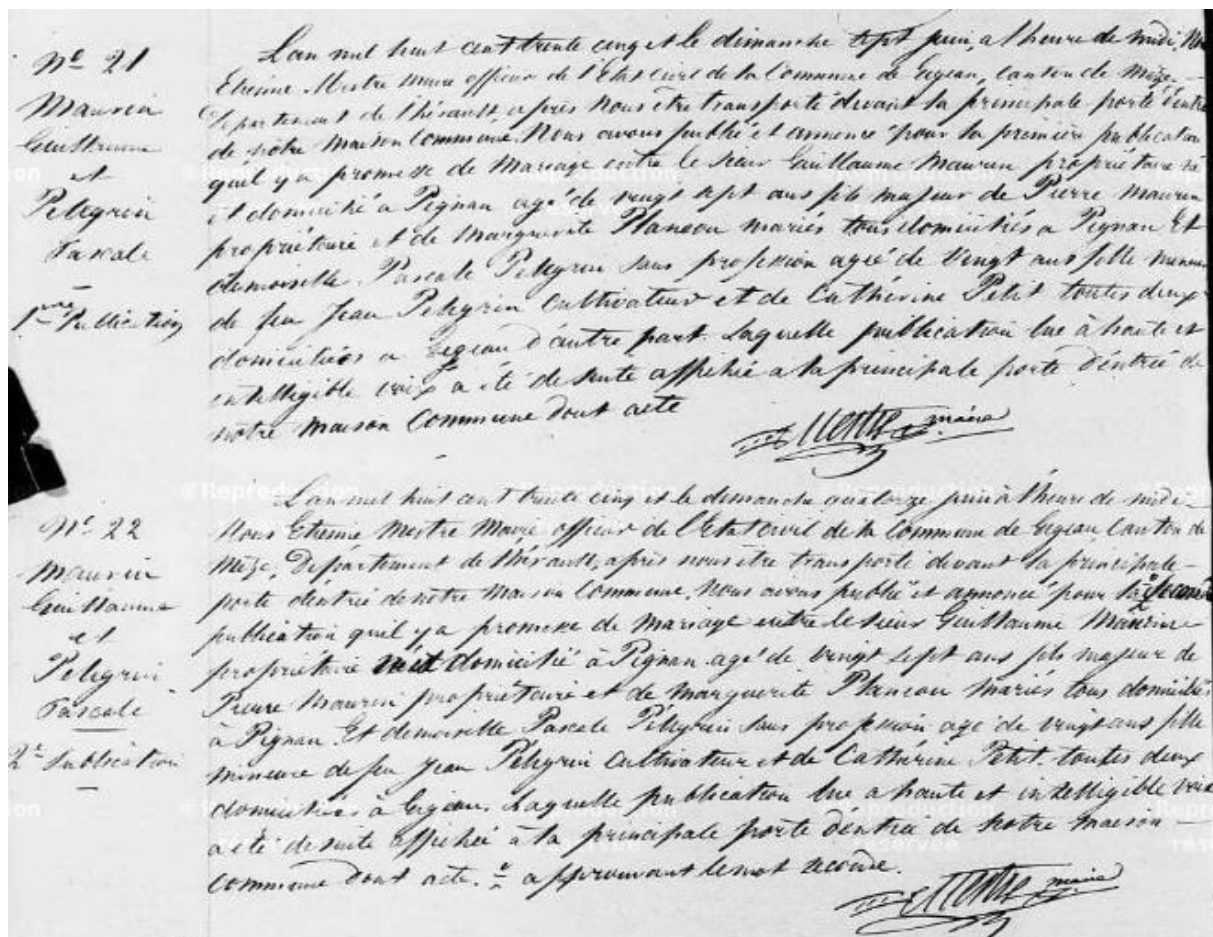 Nº 21
Maurin
Guillaume
et
Pelegrin
Pascale
1ere Publication
L'an mil huit cent trente cinq et le dimanche sept juin, a l'heure de midi, Nous
Etienne Mestre maire officier de l'Etat civil de la Commune de Gigean, canton de Mèze
Departement de l'hérault, après nous être transporté devant la principale porte d'entrée
de notre maison Commune. Nous avons publié et annoncé pour la première publication
qu'il y a promesse de Mariage entre le sieur Guillaume Maurin propriétaire né
et domicilié a Pignan agé de vingt sept ans fils majeur de Pierre Maurin
propriétaire et de Marguerite Planeou mariés tous domiciliés a Pignan Et
demoiselle Pascale Pelegrin sans profession agée de vingt ans fille mineure
de feu Jean Pelegrin Cultivateur et de Cathérine Petit toutes deux
domiciliées a Gigean d'autre part. Laquelle publication lue à haute et
intelligible voix a été de suite affichée a la principale porte d'entrée de
notre maison Commune dont acte
Mestre maire
Nº 22
Maurin
Guillaume
et
Pelegrin
Pascale
2e Publication
L'an mil huit cent trente cinq et le dimanche quatorze juin à l'heure de midi
Nous Etienne Mestre Maire officier de l'Etat civil de la Commune de Gigean Canton de
Mèze, Département de l'hérault, après nous être transporté devant la principale
porte d'entrée de notre maison Commune, nous avons publié et annoncé pour la
publication qu'il y a promesse de Mariage entre le sieur Guillaume Maurin
propriétaire domicilié à Pignan agé de vingt sept ans fils majeur de
Pierre Maurin propriétaire et de Marguerite Planeou mariés tous domiciliés
à Pignan. Et demoiselle Pascale Pélegrin sans profession agé de vingt ans fille
mineure de feu Jean Pelegrin Cultivateur et de Cathérine Petit toutes deux
domiciliées à Gigean. Laquelle publication lue a haute et intelligible voix
a été de suite affichée à la principale porte d'entrée de notre maison
commune dont acte. approuvant le mot seconde.
Mestre maire